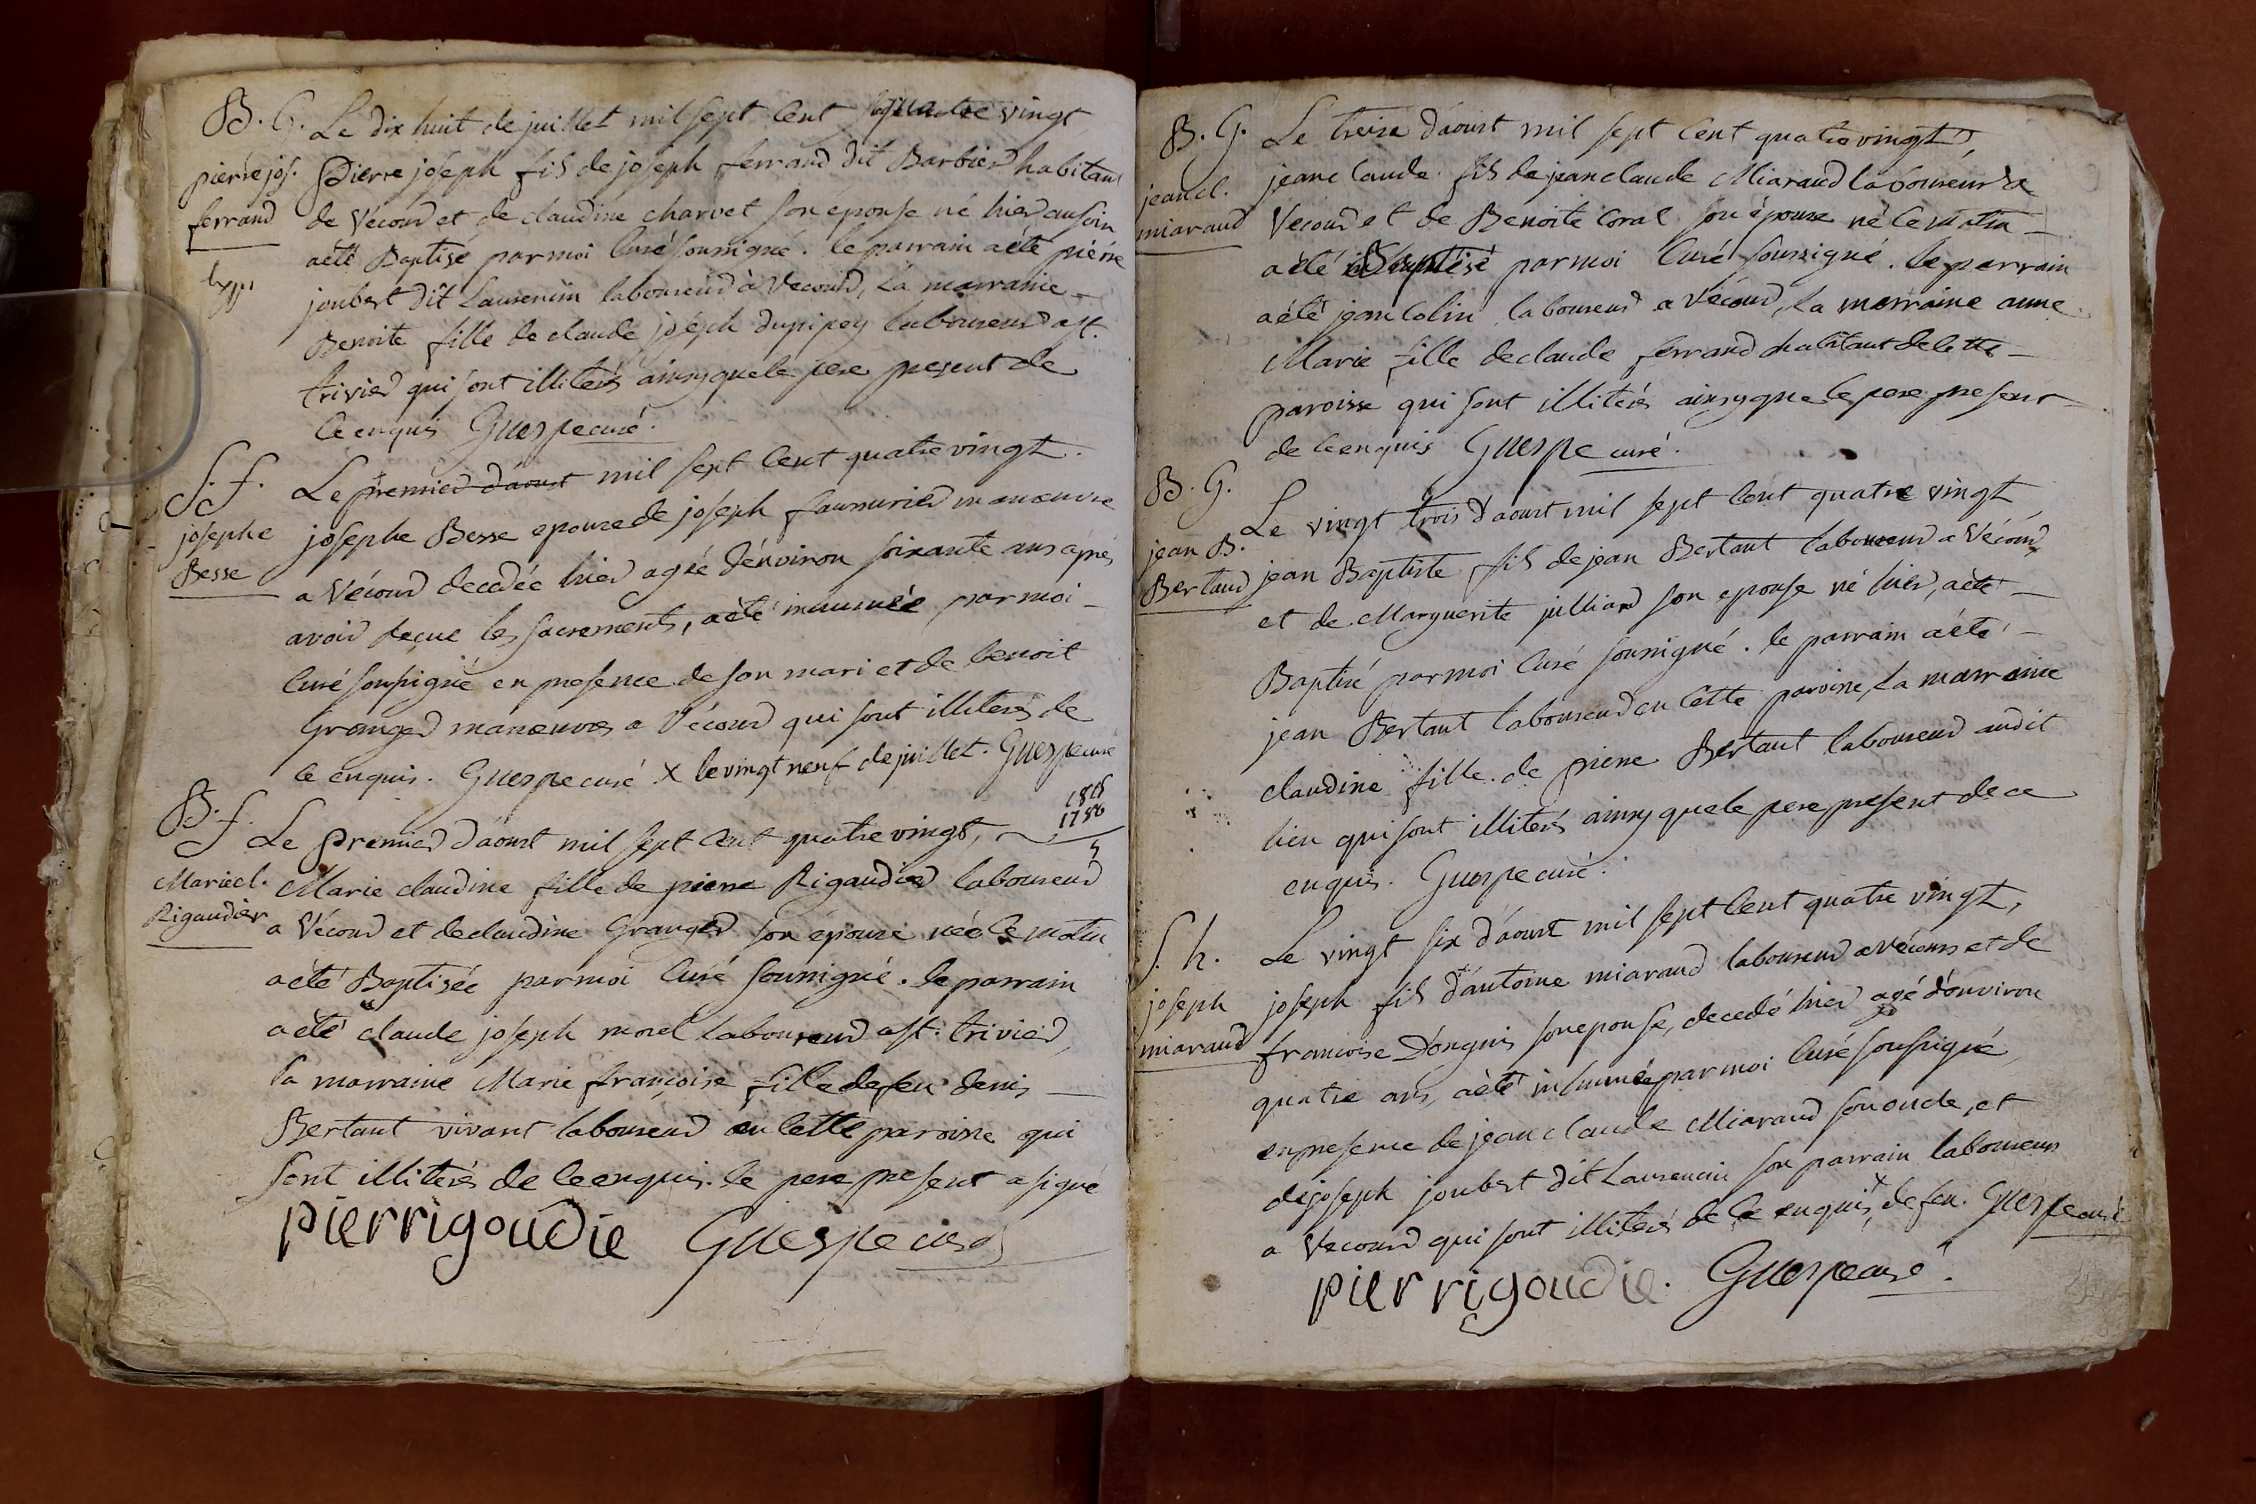 B. G. Le dix huit de juillet mil sept cent quatre vingt
pierre jos. Pierre joseph fils de joseph ferrand dit Barbier habitant
ferrand de Vécour et de claudine charvet son epouse né hier au soir
a été Baptisé par moi curé soussigné. le parrain a été pierre
joubert dit Laurencin laboureur à Vécour, la marraine
Benoite fille de claude joseph dupipey laboureur a st.
trivier qui sont illiterés ainsy que le pere present de
ce enquis Guespe curé.
S. f. Le premier d'aoust mil sept cent quatre vingt.
josephe josephe Besse epouze de joseph manœuvre
Besse a Vécour decedée hier agée d'environ soixante ans après
avoir reçue les sacrements, a été inhumée par moi
curé soussigné en presence de son mari et de benoit
Granger manœuvre a Vécour qui sont illiterés de
ce enquis. Guespe curé x le vingt neuf de juillet. Guespe curé
B. f. Le premier d'aoust mil sept cent quatre vingt,
1780
5
Marie cl. Marie claudine fille de pierre Rigaudier laboureur
Rigaudier a Vécour et de claudine Granger son épouze née ce matin
a été Baptisée par moi curé soussigné. le parrain
a été claude joseph morel laboureur a st. trivier,
la marraine Marie françoise fille de feu denis
Bertaut vivant laboureur en cette paroisse qui
sont illiterés de ce enquis. le pere present a signé
pierrigoudie Guespe curé
B. G. Le treize d'aoust mil sept cent quatre vingt,
jean cl. jean claude fils de jean claude Miaraud laboureur a
miaraud Vécour et de Benoite Coral son épouze né ce matin
a été Baptisé par moi curé soussigné. le parrain
a été jean Colin laboureur a Vécour, la marraine anne
Marie fille de claude ferrand habitant de cette
paroisse qui sont illiterés ainsy que le pere present
de ce enquis Guespe curé.
B. G. Le vingt trois d'aoust mil sept cent quatre vingt
jean B. jean Baptiste fils de jean Bertaut laboureur a Vécour
Bertaud et de Marguerite julliard son epouse né hier, a été
Baptisé par moi curé soussigné. le parrain a été
jean Bertaut laboureur en cette paroisse, la marraine
claudine fille de pierre Bertaut laboureur audit
lieu qui sont illiterés ainsy que le pere present de ce
enquis. Guespe curé.
S. h. Le vingt six d'aoust mil sept cent quatre vingt,
joseph joseph fils d'antoine miaraud laboureur a Vécour et de
miaraud francoise son epouse, decedé hier agé d'environ
quatre ans, a été inhumé par moi curé soussigné
en presence de jean claude Miaraud son oncle, et
de joseph joubert dit Laurencin son parrain laboureurs
a Vecour qui sont illiterés de ce enquis, de feu. Guespe curé
pierrigoudie. Guespe curé.